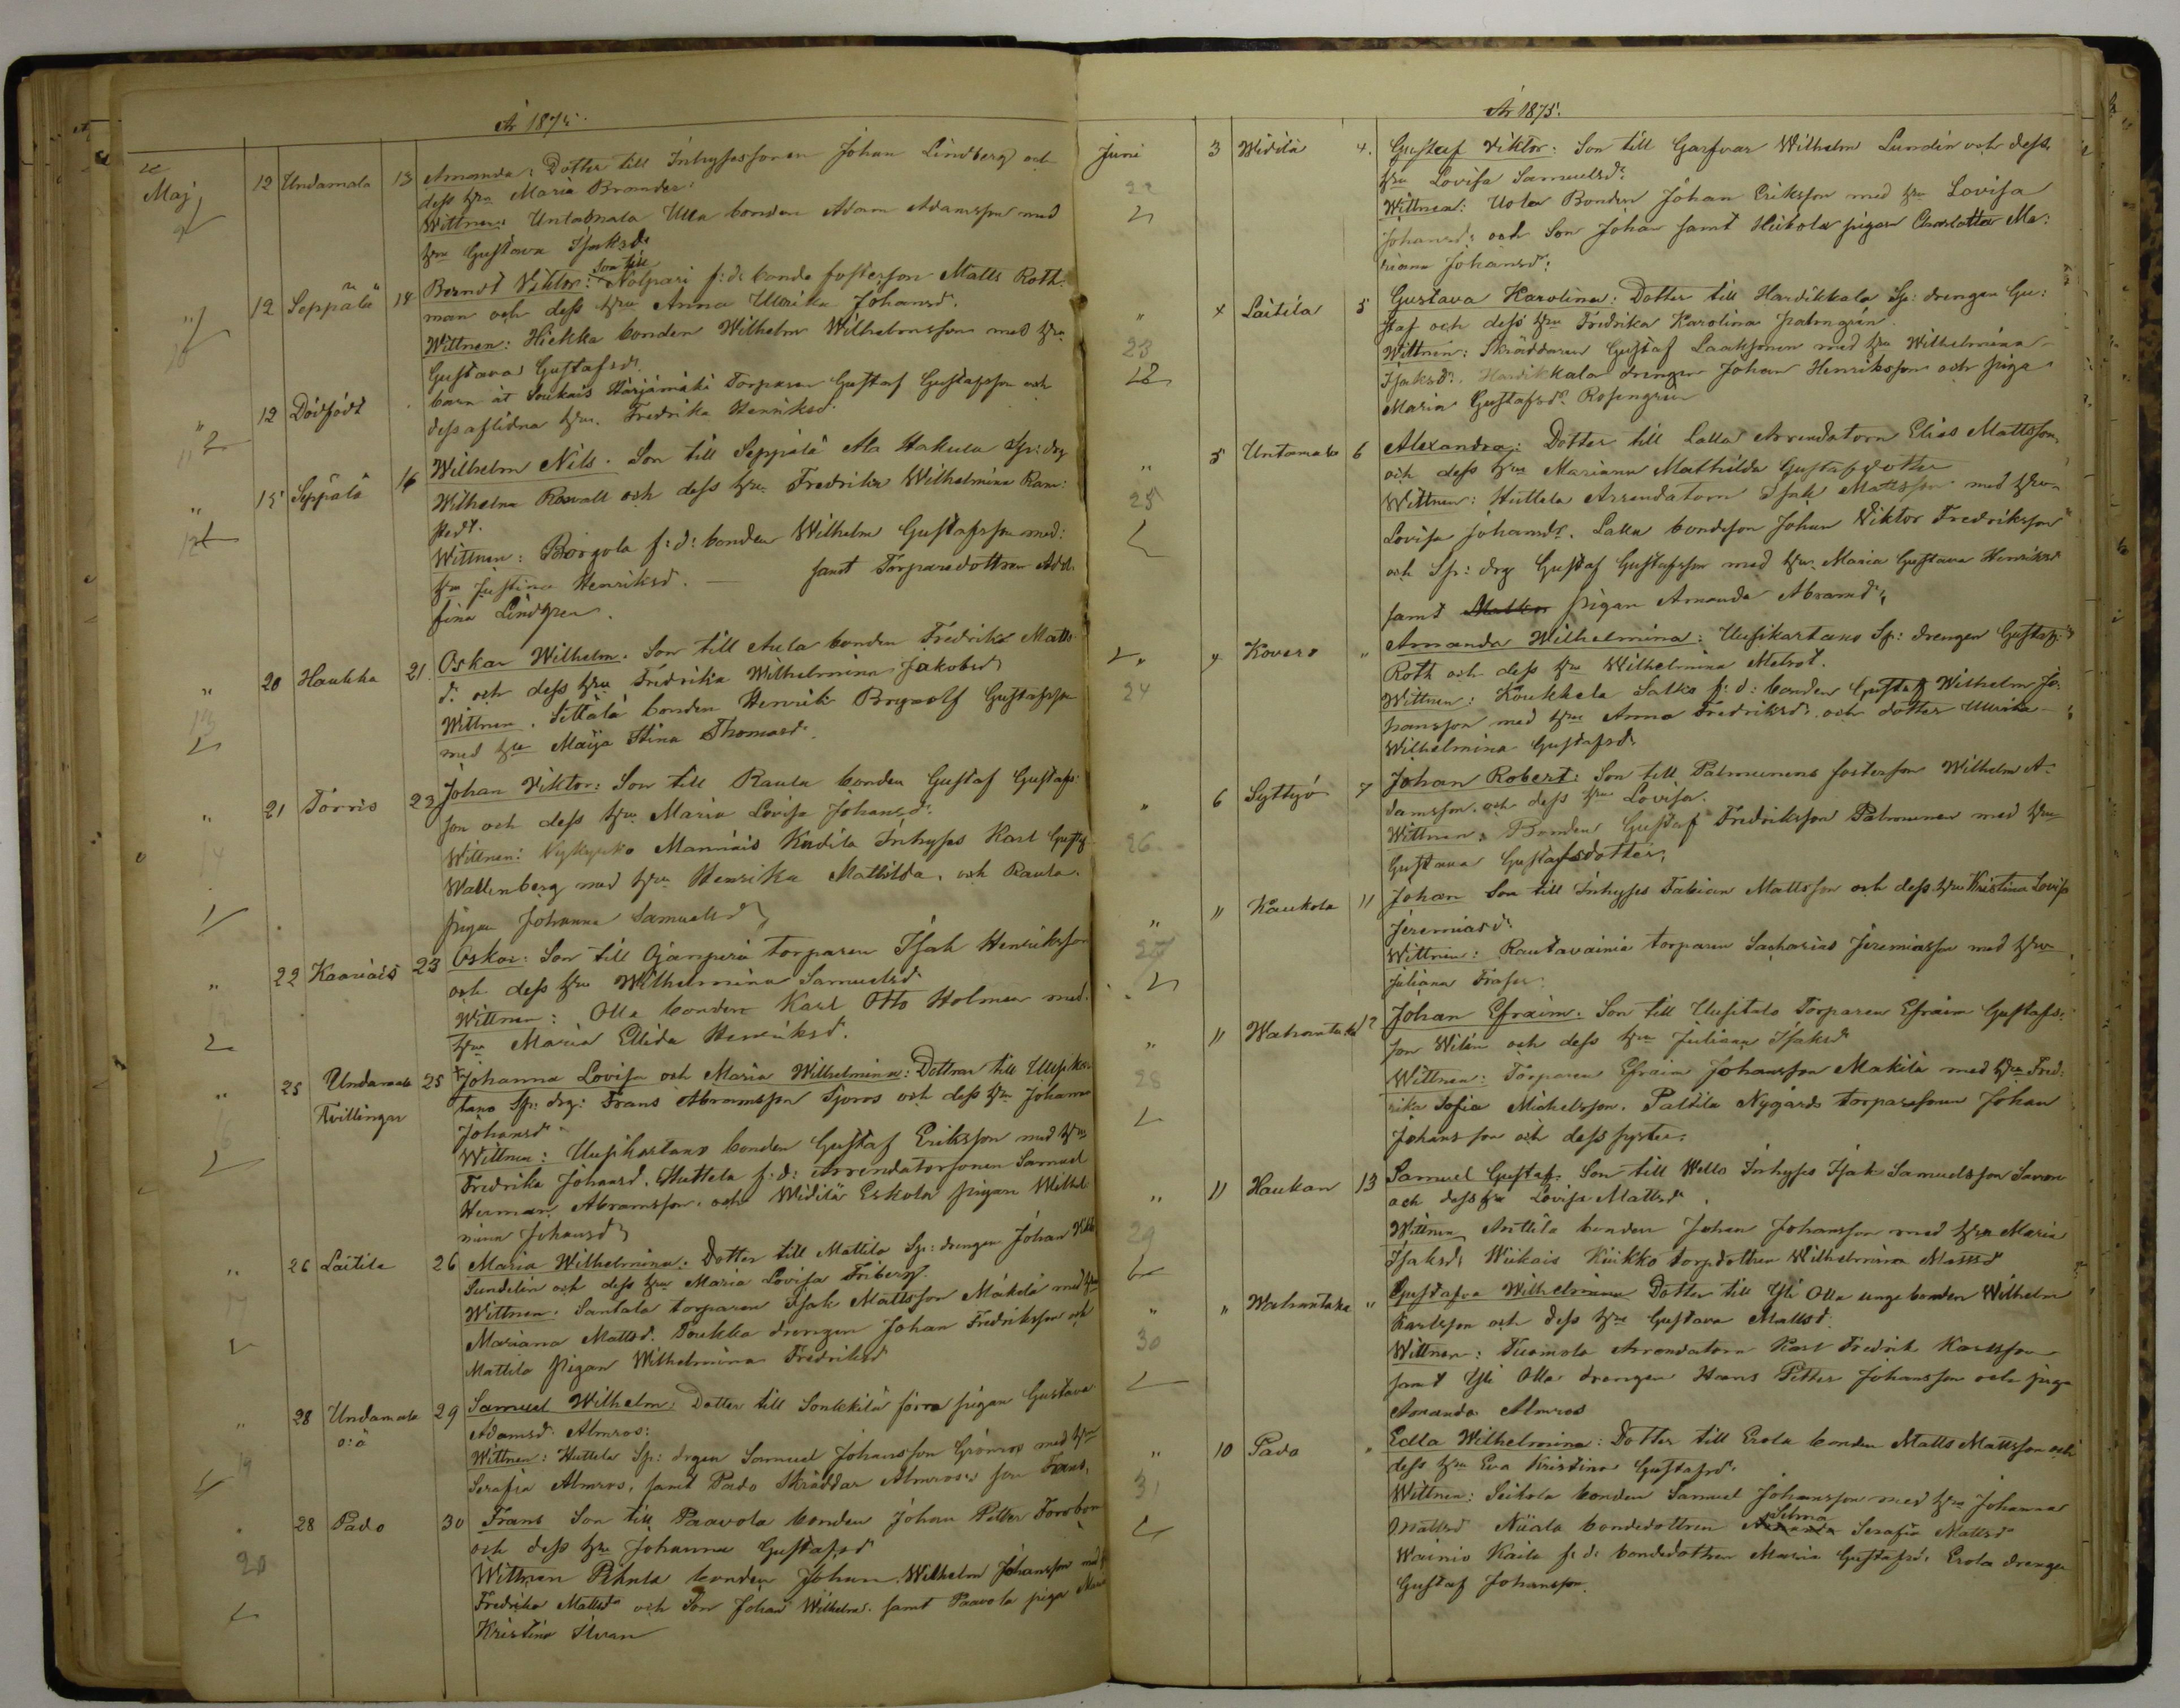 År 1875.
Maj 12 Undamala 13 Amanda: Dotter till Inhysessonen Johan Lindberg och
dess hu Maria Brander:
Wittnen: Untamala Ulla bonden Adam Adamsson med
hu Gustava Isaksd:
12 Seppälä 14 Berndt Viktor: son till Nolpari f:d: bonde fosterson Matts Roth-
man och dess hu Anna Ulrika Johansd.
Wittnen: Hiekka bonden Wilhelm Wilhelmsson med hu
Gustava Gustafsd.
12 Dödfödt barn åt Soukais Harjämäki Torparen Gustaf Gustafsson och
dess aflidna hu. Fredrika Henriksd.
15 Seppälä 16 Wilhelm Nils. Son till Seppälä Ala Hakula Sp: drg
Wilhelm Roswall och dess hu Fredrika Wilhelmina Ram:
stedt.
Wittnen: Borgola f:d: bonden Wilhelm Gustafsson med:
hu Justina Henriksd. — samt Torparedottren Adol-
fina Lindgren.
20 Haukka 21. Oskar Wilhelm. Son till Aula bonden Fredrik Matts
d. och dess hu Fredrika Wilhelmina Jakobsd
Wittnen. Sittalä bonden Henrik Brynolf Gustafsson
med hu Maija Stina Thomasd.
21 Torris 22 Johan Viktor: Son till Raula bonden Gustaf Gustafs
son och dess hu Maria Lovisa Johansd.
Wittnen: Nykyrko Manniais Kudila Inhyses Karl Gustaf
Wallenberg med hu Henrika Mathilda, och Raula
pigan Johanna Samuelsd
22 Kaariais 23 Oskar: Son till Ojanperä torparen Isak Henriksson
och dess hu Wilhelmina Samuelsd
Wittnen: Olla bonden Karl Otto Holmen med
hu Maria Elida Henriksd.
25 Undamala 25 Johanna Lovisa och Maria Wilhelmina: Dottrar till Uusikar-
Tvillingar tano Sp: drg: Frans Abramsson Sjöros och dess hu Johanna
Johansd
Wittnen: Uusikartano bonden Gustaf Eriksson med hu
Fredrika Johansd, Huttela f:d: Arrendatorsonen Samuel
Herman Abramsson och Widilä Eskola pigan Wilhel
mina Johansd
26 Laitila 26 Maria Wilhelmina: Dotter till Mattila Sp: drengen Johan Vikt
Sundelin och dess hu Maria Lovisa Friberg.
Wittnen. Santala torparen Isak Mattsson Mäkelä med hu
Mariana Mattsd. Toukka drengen Johan Fredriksson och
Mattila pigan Wilhelmina Fredriksd
28 Undamala 29 Samuel Wilhelm: Dotter till Sonkkila förra pigan Gustava
o:ä Adamsd. Almros:
Wittnen: Huttela Sp: drgen Samuel Johansson Grönros med hu
Serafia Almros, samt Pado Skräddar Almroses son Frans.
28 Pado 30 Frans Son till Paavola bonden Johan Petter
och dess hu Johanna Gustafsd
Wittnen Pihnla bonden Johan Wilhelm Johansson med
Fredrika Mattsd och Son Johan Wilhelm. samt Paavola piga Maria
Kristina
År 1875.
Juni 3 Widilä 4. Gustaf Viktor: Son till Garfvar Wilhelm Lundin och dess
hu Lovisa Samuelsd:
Wittnen: Uola Bonden Johan Eriksson med hu Lovisa
Johansd: och Son Johan samt Heikola pigan Charlotta Ma:
riana Johansd:
4 Laitila 5 Gustava Karolina: Dotter till Hardikkala Sp: drengen Gu:
staf och dess hu Fredrika Karolina Palmgrén.
Wittnen: Skräddaren Gustaf Laaksonen med hu Wilhelmina
Isaksd:. Hardikkala drengen Johan Henriksson och piga
Maria Gustafsd: Rosengren
5 Untamala 6 Alexandra: Dotter till Lalla Arrendatorn Elias Mattsson,
och dess hu Mariana Mathilda Gustafsdotter
Wittnen: Huttela Arrendatorn Isak Mattsson med hu
Lovisa Johansd:. Lalla bondeson Johan Viktor Fredriksson
och Sp: drg Gustaf Gustafsson med hu. Maria Gustava Henriksd
samt pigan Amanda Abramsd:
4 Kovero " Amanda Wilhelmina: Uusikartano Sp: drengen Gustaf
Roth och dess hu Wilhelmina Melrot.
Wittnen: Koukkela Salko f:d: bonden Gustaf Wilhelm Jo:
hansson med hu Anna Fredriksd: och dotter Ulrika
Wilhelmina Gustafsd:
6 Syttyö 7 Johan Robert: Son till Palmunens fosterson Wilhelm A-
damsson, och dess hu Lovisa.
Wittnen: Bonden Gustaf Fredriksson Palmunen med hu
Gustava Gustafsdotter;
" 11 Kaukola 11 Johan Son till Inhyses Fabian Mattsson och dess hu Kristina Lovisa
Jeremiasd:
Wittnen: Rautavainia torparen Sacharias Jeremiasson med hu
Juliana
" 11 Wahantaka 12 Johan Efraim. Son till Uusitalo Torparen Efraim Gustafs:
son Wilén och dess hu Juliana Isaksd
Wittnen: Torparen Efraim Johansson Mäkilä med hu Fred:
rika Sofia Michelsson. Palttila Nygårds torparsonen Johan
Johansson och dess syster.
" 11 Haukan 13 Samuel Gustaf. Son till Wello Inhyses Isak Samuelsson
och dess hu Lovisa Mattsd
Wittnen Anttila bonden Johan Johansson med hu Maria
Isaksd: Wiikais Kiikko torpdottren Wilhelmina Mattsd
" " Wahantaka " Gustafva Wilhelmina Dotter till Yli Olla unge bonden Wilhelm
Karlsson och dess hu Gustava Mattsd.
Wittnen: Tuomola Arrendatorn Karl Fredrik Karlsson
samt Yli Olla drengen Hans Petter Johansson och piga
Amanda Almros
" 10 Pado " Edla Wilhelmina: Dotter till Erola bonden Matts Mattsson och
dess hu Eva Kristina Gustafsd.
Wittnen: Seikola bonden Samuel Johansson med hu Johanna
Mattsd Niiala bondedottren Selma Serafia Mattsd
Wainio Kaila f:d: bondedottren Maria Gustafsd: Erola drengen
Gustaf Johansson.